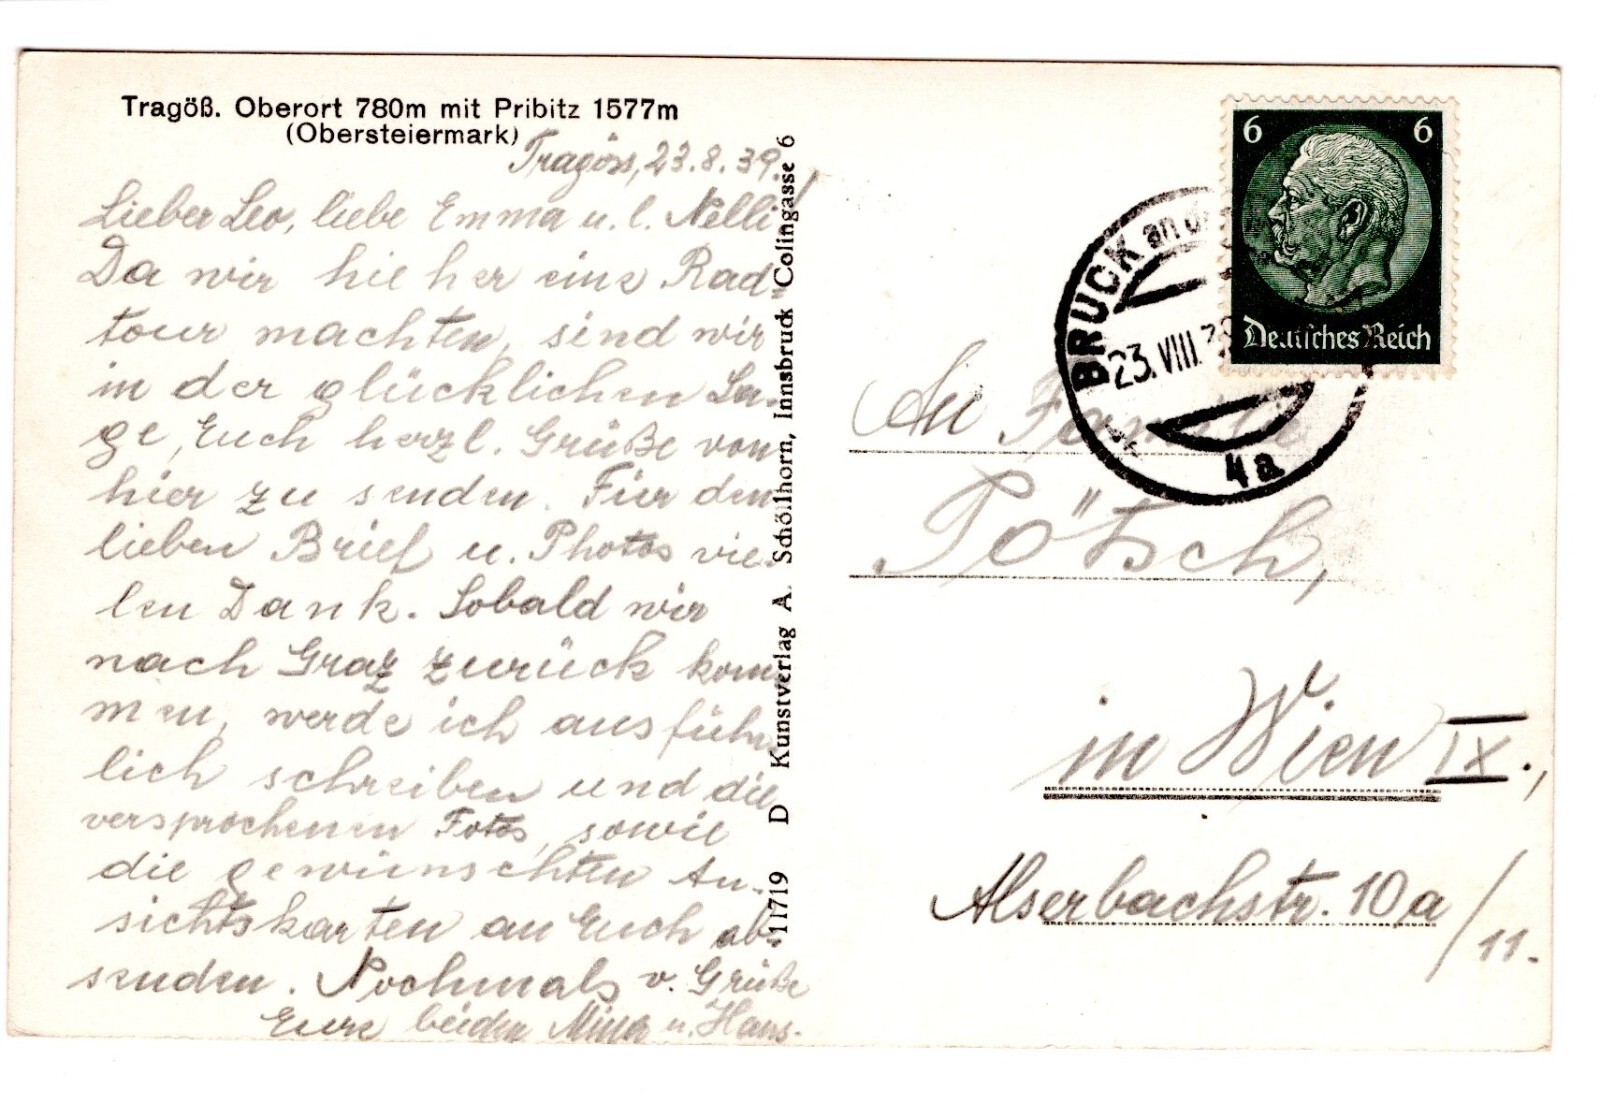 Tragöß. Oberort 780m mit Pribitz 1577m
(Obersteiermark)
Tragöss, 23.8.39.
Lieber Leo, liebe Emma u. l. Nelli!
Da wir hieher eine Rad-
tour machten, sind wir
in der glücklichen La-
ge, Euch herzl. Grüße von
hier zu senden. Für den
lieben Brief u. Photos vie-
len Dank. Sobald wir
nach Graz zurück kom-
men, werde ich ausführ-
lich schreiben und die
versprochenen Fotos, sowie
die gewünschten An-
sichtskarten an Euch ab-
senden. Nochmals v. Grüße
Eure beiden Mina u. Hans.
11719 D Kunstverlag A. Schöllhorn, Innsbruck Colingasse 6
6 6
Deutsches Reich
BRUCK an der
23.VIII.39
4a
An Familie
Pötsch,
in Wien IX.,
Alserbachstr. 10a/11.